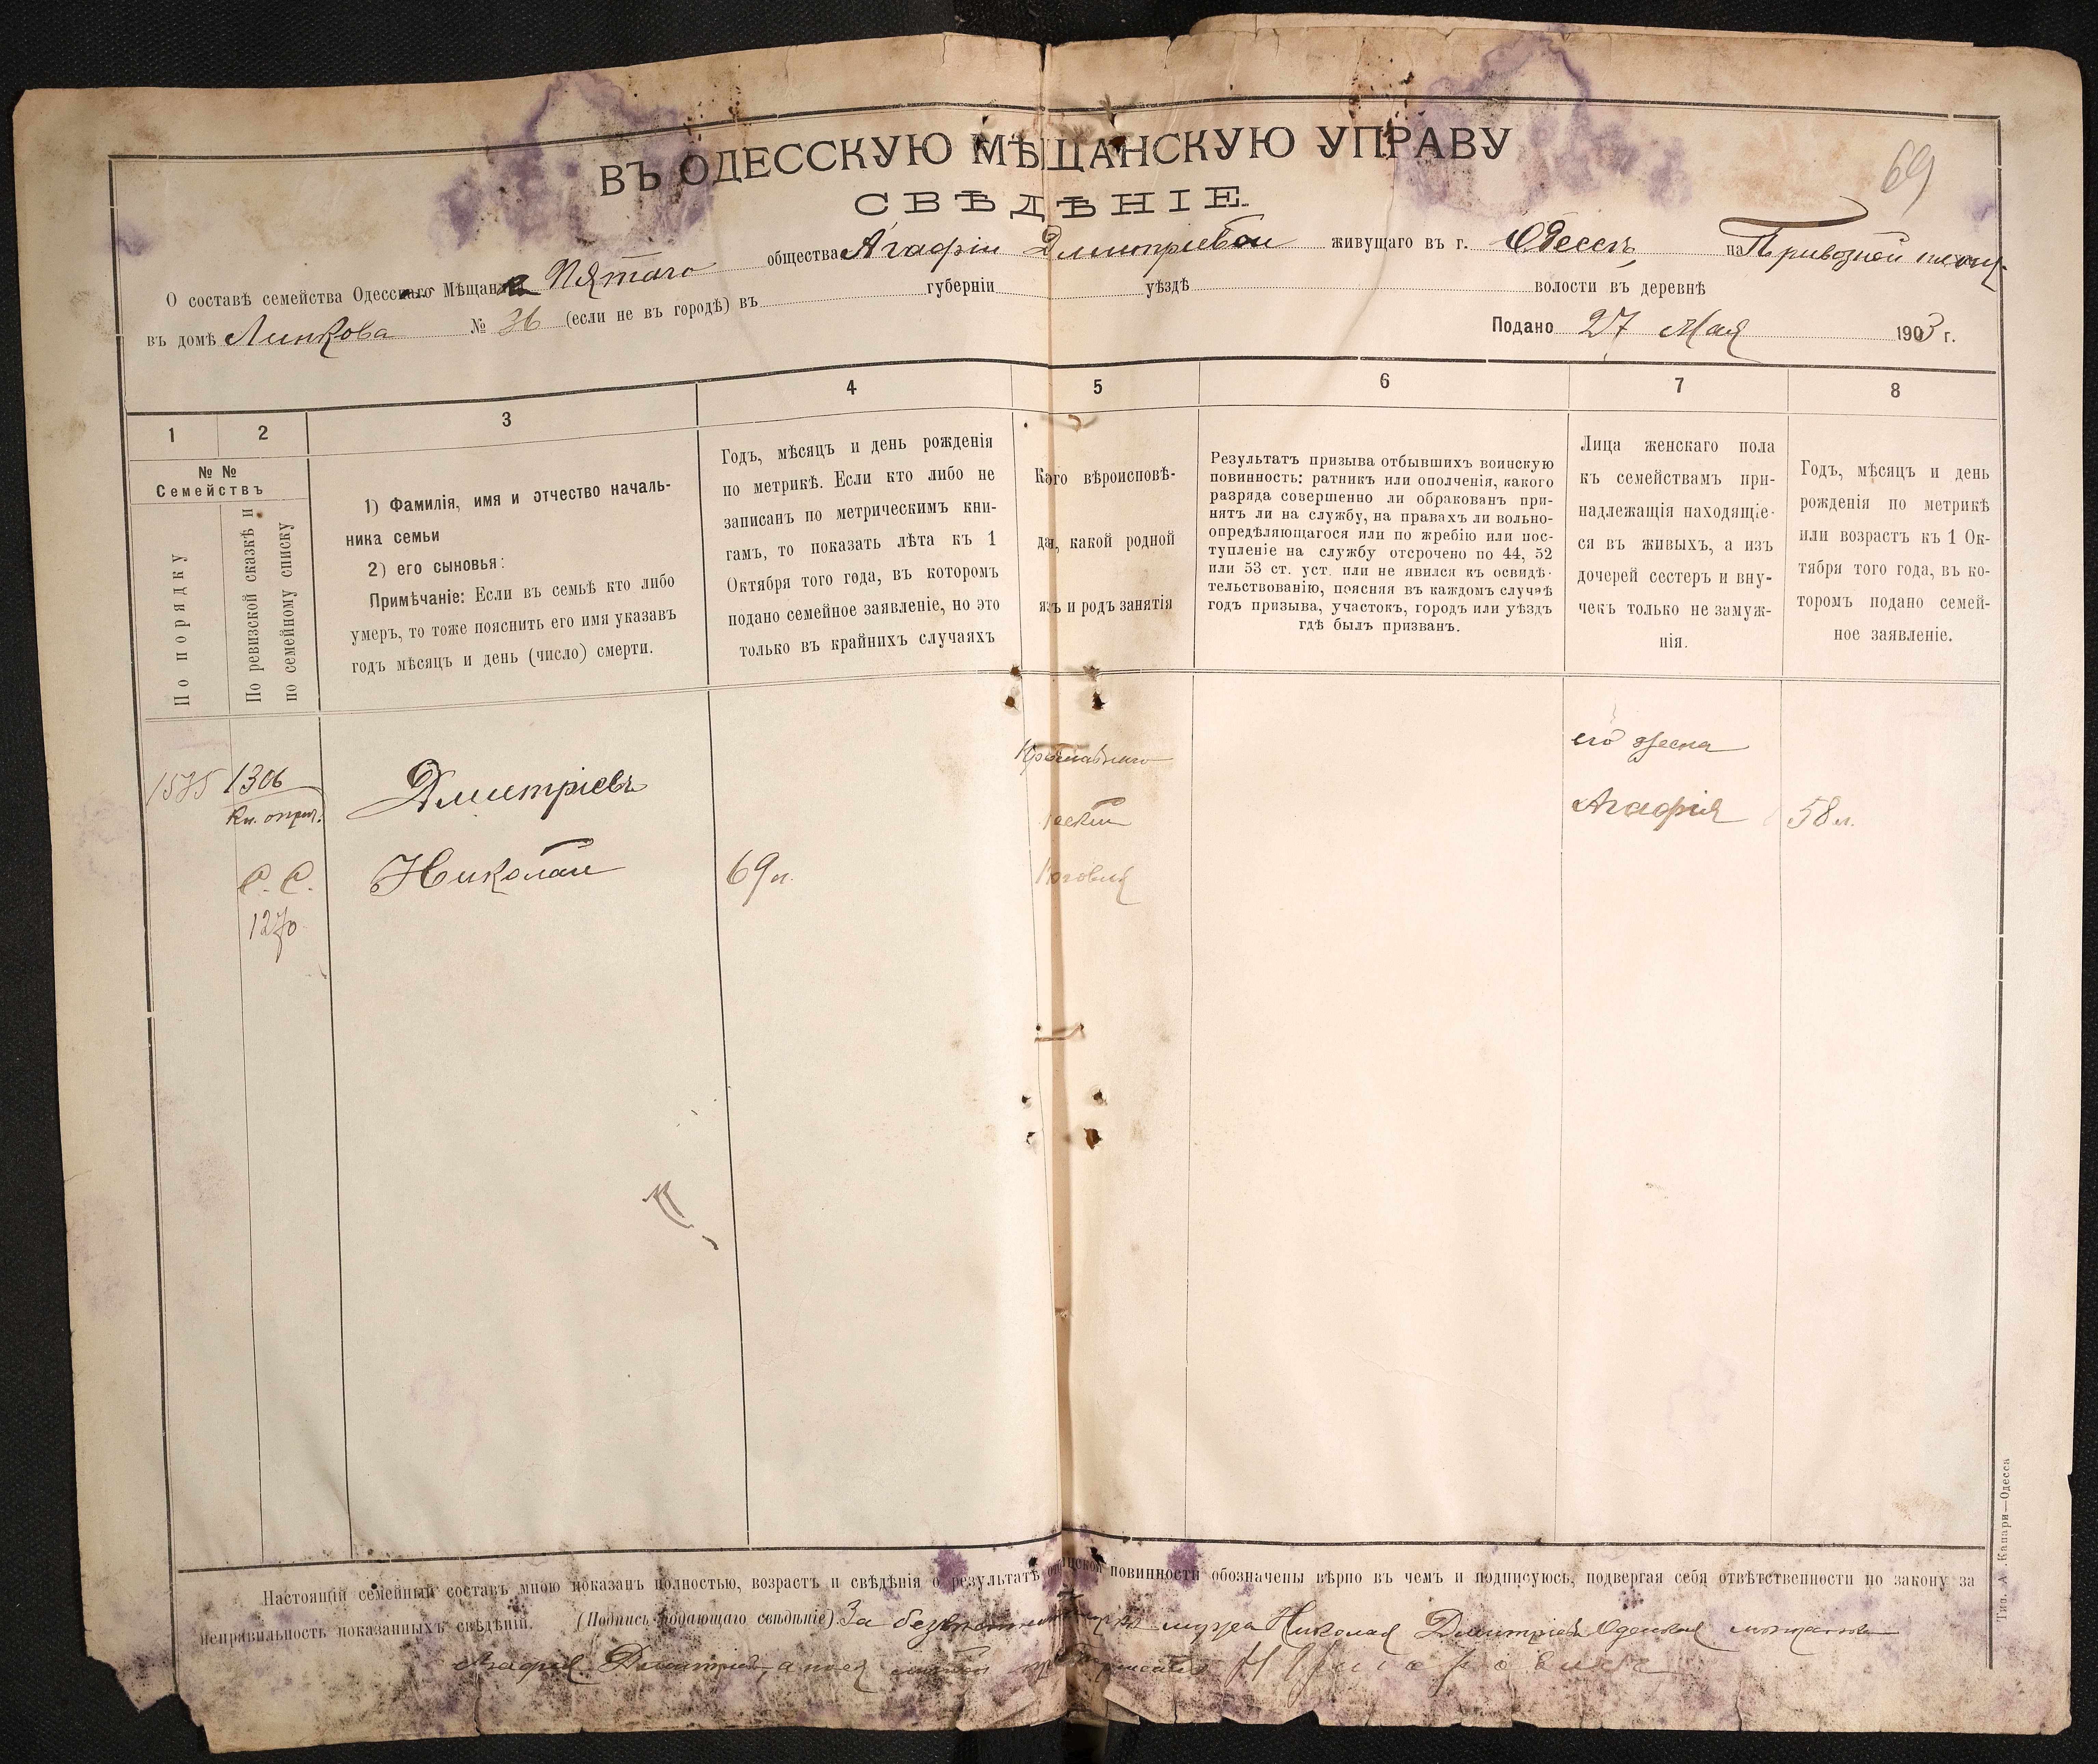 69
ВЪ ОДЕССКУЮ МѢЩАНСКУЮ УПРАВУ
СВѢДѢНІЕ
О составѣ семейства Одесскаго Мѣщанк Пятаго общества Агафіи Дмитріевой живущаго въ г. Одессѣ на Привозной площ.
въ домѣ Линкова № 36 (если не въ городѣ) въ губерніи уѣздѣ волости въ деревнѣ
Подано 27 Мая 1903 г.
1 2 3 4 5 6 7 8
№ №
Семействъ
По порядку
По ревизской сказкѣ и
по семейному списку
1) Фамилія, имя и отчество началь-
ника семьи
2) его сыновья:
Примѣчаніе: Если въ семьѣ кто либо
умеръ, то тоже пояснить его имя указавъ
годъ мѣсяцъ и день (число) смерти.
Годъ, мѣсяцъ и день рожденія
по метрикѣ. Если кто либо не
записанъ по метрическимъ кни-
гамъ, то показать лѣта къ 1
Октября того года, въ которомъ
подано семейное заявленіе, но это
только въ крайнихъ случаяхъ
Каго вѣроисповѣ-
данія, какой родной
языкъ и родъ занятія
Результатъ призыва отбывшихъ воинскую
повинность: ратникъ или ополченія, какого
разряда совершенно ли обракованъ при-
нятъ ли на службу, на правахъ ли вольно-
опредѣляющагося или по жребію или пос-
тупленіе на службу отсрочено по 44, 52
или 53 ст. уст. или не явился къ освидѣ-
тельствованію, поясняя въ каждомъ случаѣ
годъ призыва, участокъ, городъ или уѣздъ
гдѣ былъ призванъ.
Лица женскаго пола
къ семействамъ при-
надлежащія находящіе-
ся въ живыхъ, а изъ
дочерей сестеръ и вну-
чекъ только не замуж-
нія.
Годъ, мѣсяцъ и день
рожденія по метрикѣ
или возрастъ къ 1 Ок-
тября того года, въ ко-
торомъ подано семей-
ное заявленіе.
1306 Дмитріевъ Православнаго его жена
Кн. Агафія 58 л.
С. С. Николай 69 л. Торговля
1270
Настоящій семейный составъ мною показанъ полностью, возрастъ и свѣдѣнія о результатѣ воинской повинности обозначены вѣрно въ чемъ и подписуюсь, подвергая себя отвѣтственности по закону за
неправильность показанныхъ свѣдѣній. (Подпись подающаго свѣдѣніе) За мужа Николая Дмитріева Одесская мѣщанка
Агафія Дмитріева а
Тип. А. Капари—Одесса